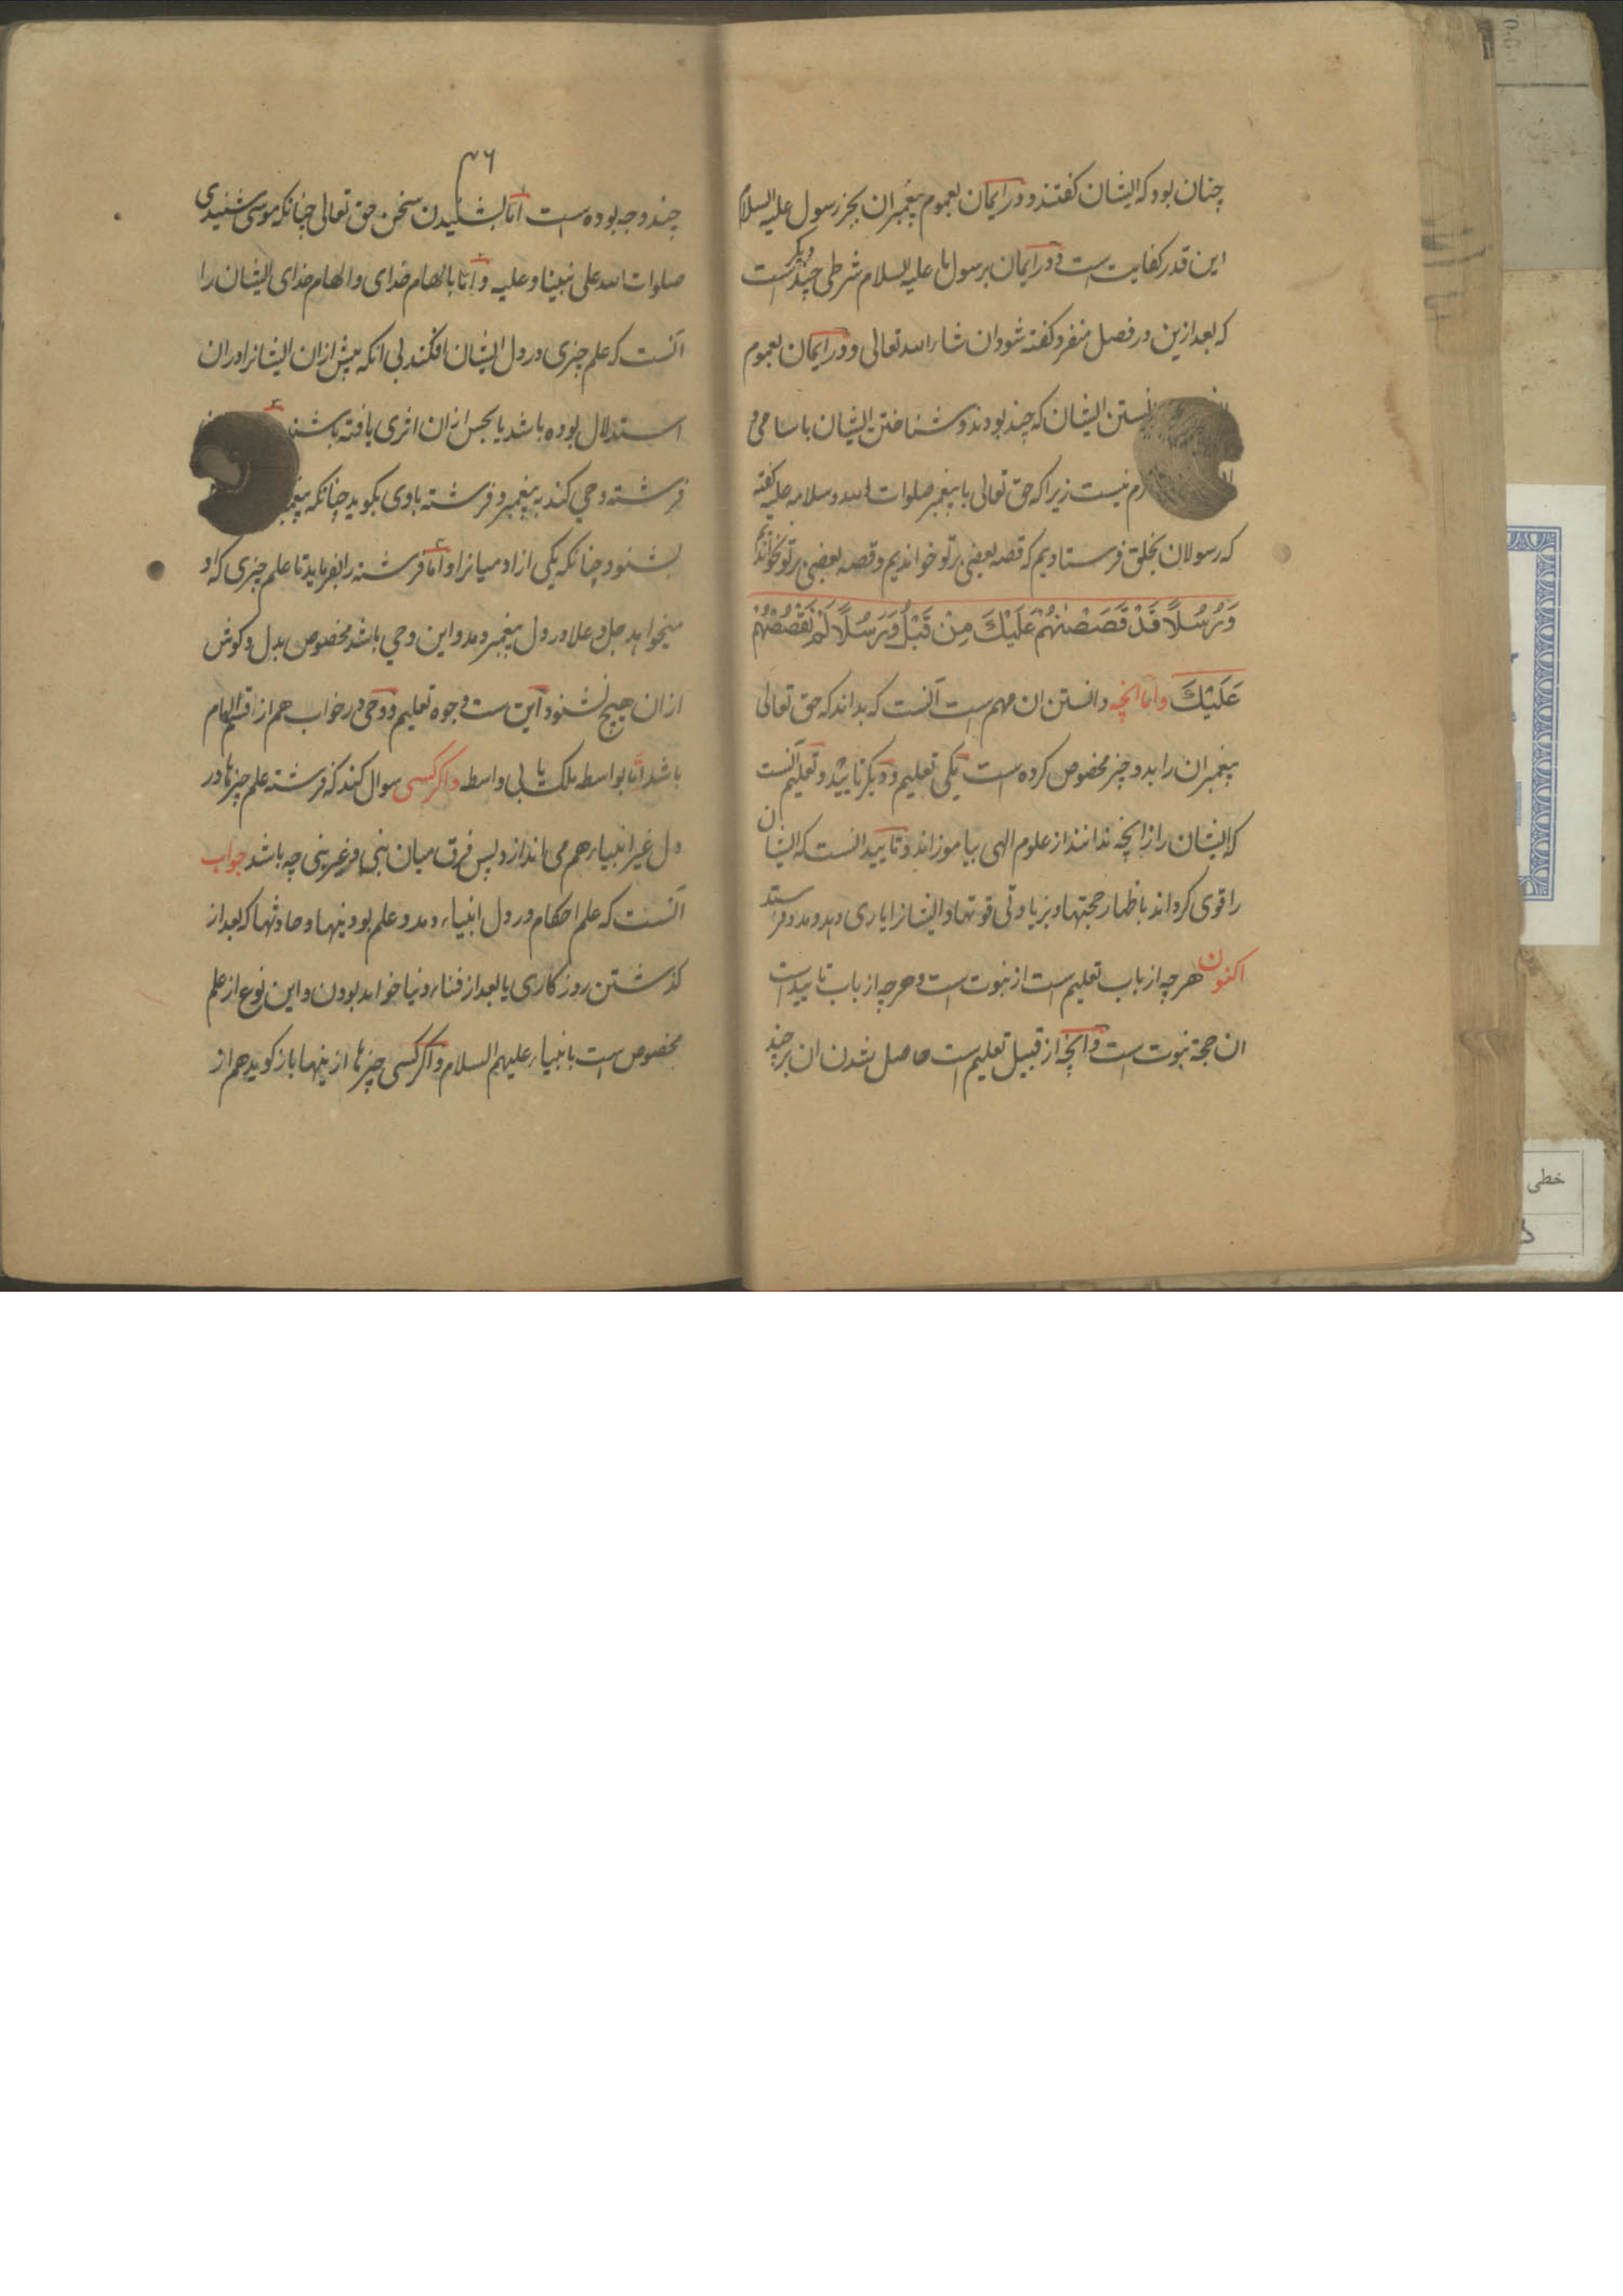 چنان بود که ایشان گفتند و در ایمان بعموم پیغمبران بجز رسول علیه السلام
این قدر کفایت است و در ایمان برسول ما علیه السلام شرطی چند دیگر است
که بعد ازین در فصل منفرد کفته شود ان شاء الله تعالی و در ایمان بعموم
نستن ایشان که چند بودند و شناختن ایشان باسامی و
نیست زیرا که حق تعالی با پیغمبر صلوات الله و سلامه علیه کفته
که رسولان بخلق فرستادیم که قصه بعضی بر تو خواندیم و قصه بعضی بر تو نخواندیم
وَرُسُلًا قَدْ قَصَصْنٰهُمْ عَلَيْكَ مِنْ قَبْلُ وَرُسُلًا لَمْ نَقْصُصْهُمْ
عَلَيْكَ واما انچه دانستن ان مهم است آنست که بداند که حق تعالی
پیغمبران را بدو چیز مخصوص کرده است یکی تعلیم و دیکر تایید و تعلیم آنست
که ایشان را از انچه ندانند از علوم الهی بیاموزاند و تایید انست که ایشان
را قوی کرداند باظهار حجتها و بزیادتی قوتها و ایشانرا یاری دهد و مدد فرستد
اکنون هرچه از باب تعلیم است از نبوت است و هرچه از باب تایید است
ان حجة نبوت است و انچه از قبیل تعلیم است حاصل شدن ان بر چند
۴۶
چند وجه بوده است اما بشنیدن سخن حق تعالی چنانکه موسی شنیدی
صلوات الله علی نبینا و علیه و اما بالهام خدای و الهام خدای ایشان را
آنست که علم چیزی در دل ایشان افکند بی انکه پیش از ان ایشانرا در ان
استدلال بوده باشد یا بحس از ان اثری یافته باشند
فرشته وحی کند به پیغمبر و فرشته با وی بکوید چنانکه پیغمبر
بشنود چنانکه یکی از ادمیانرا و اما فرشته را بفرماید تا علم چیزی که او
میخواهد جل و علا در دل پیغمبر دمد و این وحی باشد مخصوص بدل و کوش
از ان هیچ نشنود این ست وجوه تعلیم و وحی در خواب هم از اقسام الهام
باشد اما بواسطه ملک یا بی واسطه و اکر کسی سوال کند که فرشته علم چیزها در
دل غیر انبیا هم می اندازد پس فرق میان نبی و غیر نبی چه باشد جواب
آنست که علم احکام در دل انبیاء دمد و علم بودنیها و حادثها که بعد از
کذشتن روزکاری یا بعد از فناء دنیا خواهد بودن و این نوع از علم
مخصوص است بانبیاء علیهم السلام و اکر کسی چیزها ازینها باز کوید هم از
خطی